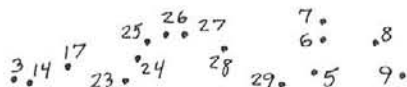 7
25 26 27 6 8
3 14 17 23 24 28 29 5 9